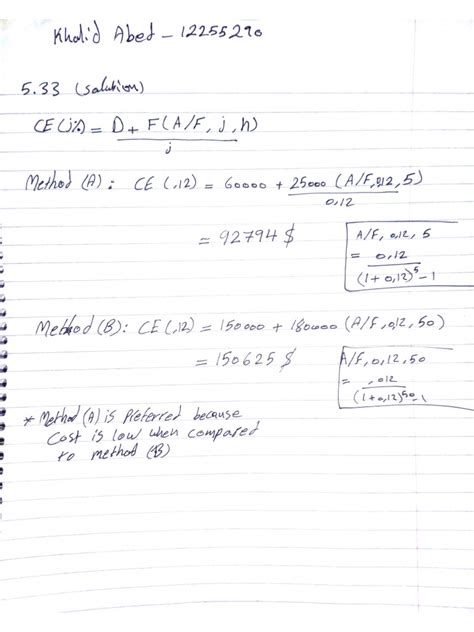 Khalid Abed - 12255290
5.33 (solution)
CE (j%) = D + F(A/F, j, n)
j
Method (A): CE (.12) = 60000 + 25000 (A/F, 0,12, 5)
0,12
= 92794 $
A/F, 0,12, 5
= 0,12
(1+0,12)^5 - 1
Method (B): CE (.12) = 150000 + 180000 (A/F, 0,12, 50)
= 150625 $
A/F, 0,12, 50
= ,012
(1+0,12)^50 - 1
* Method (A) is Preferred because
Cost is low when compared
to method (B)